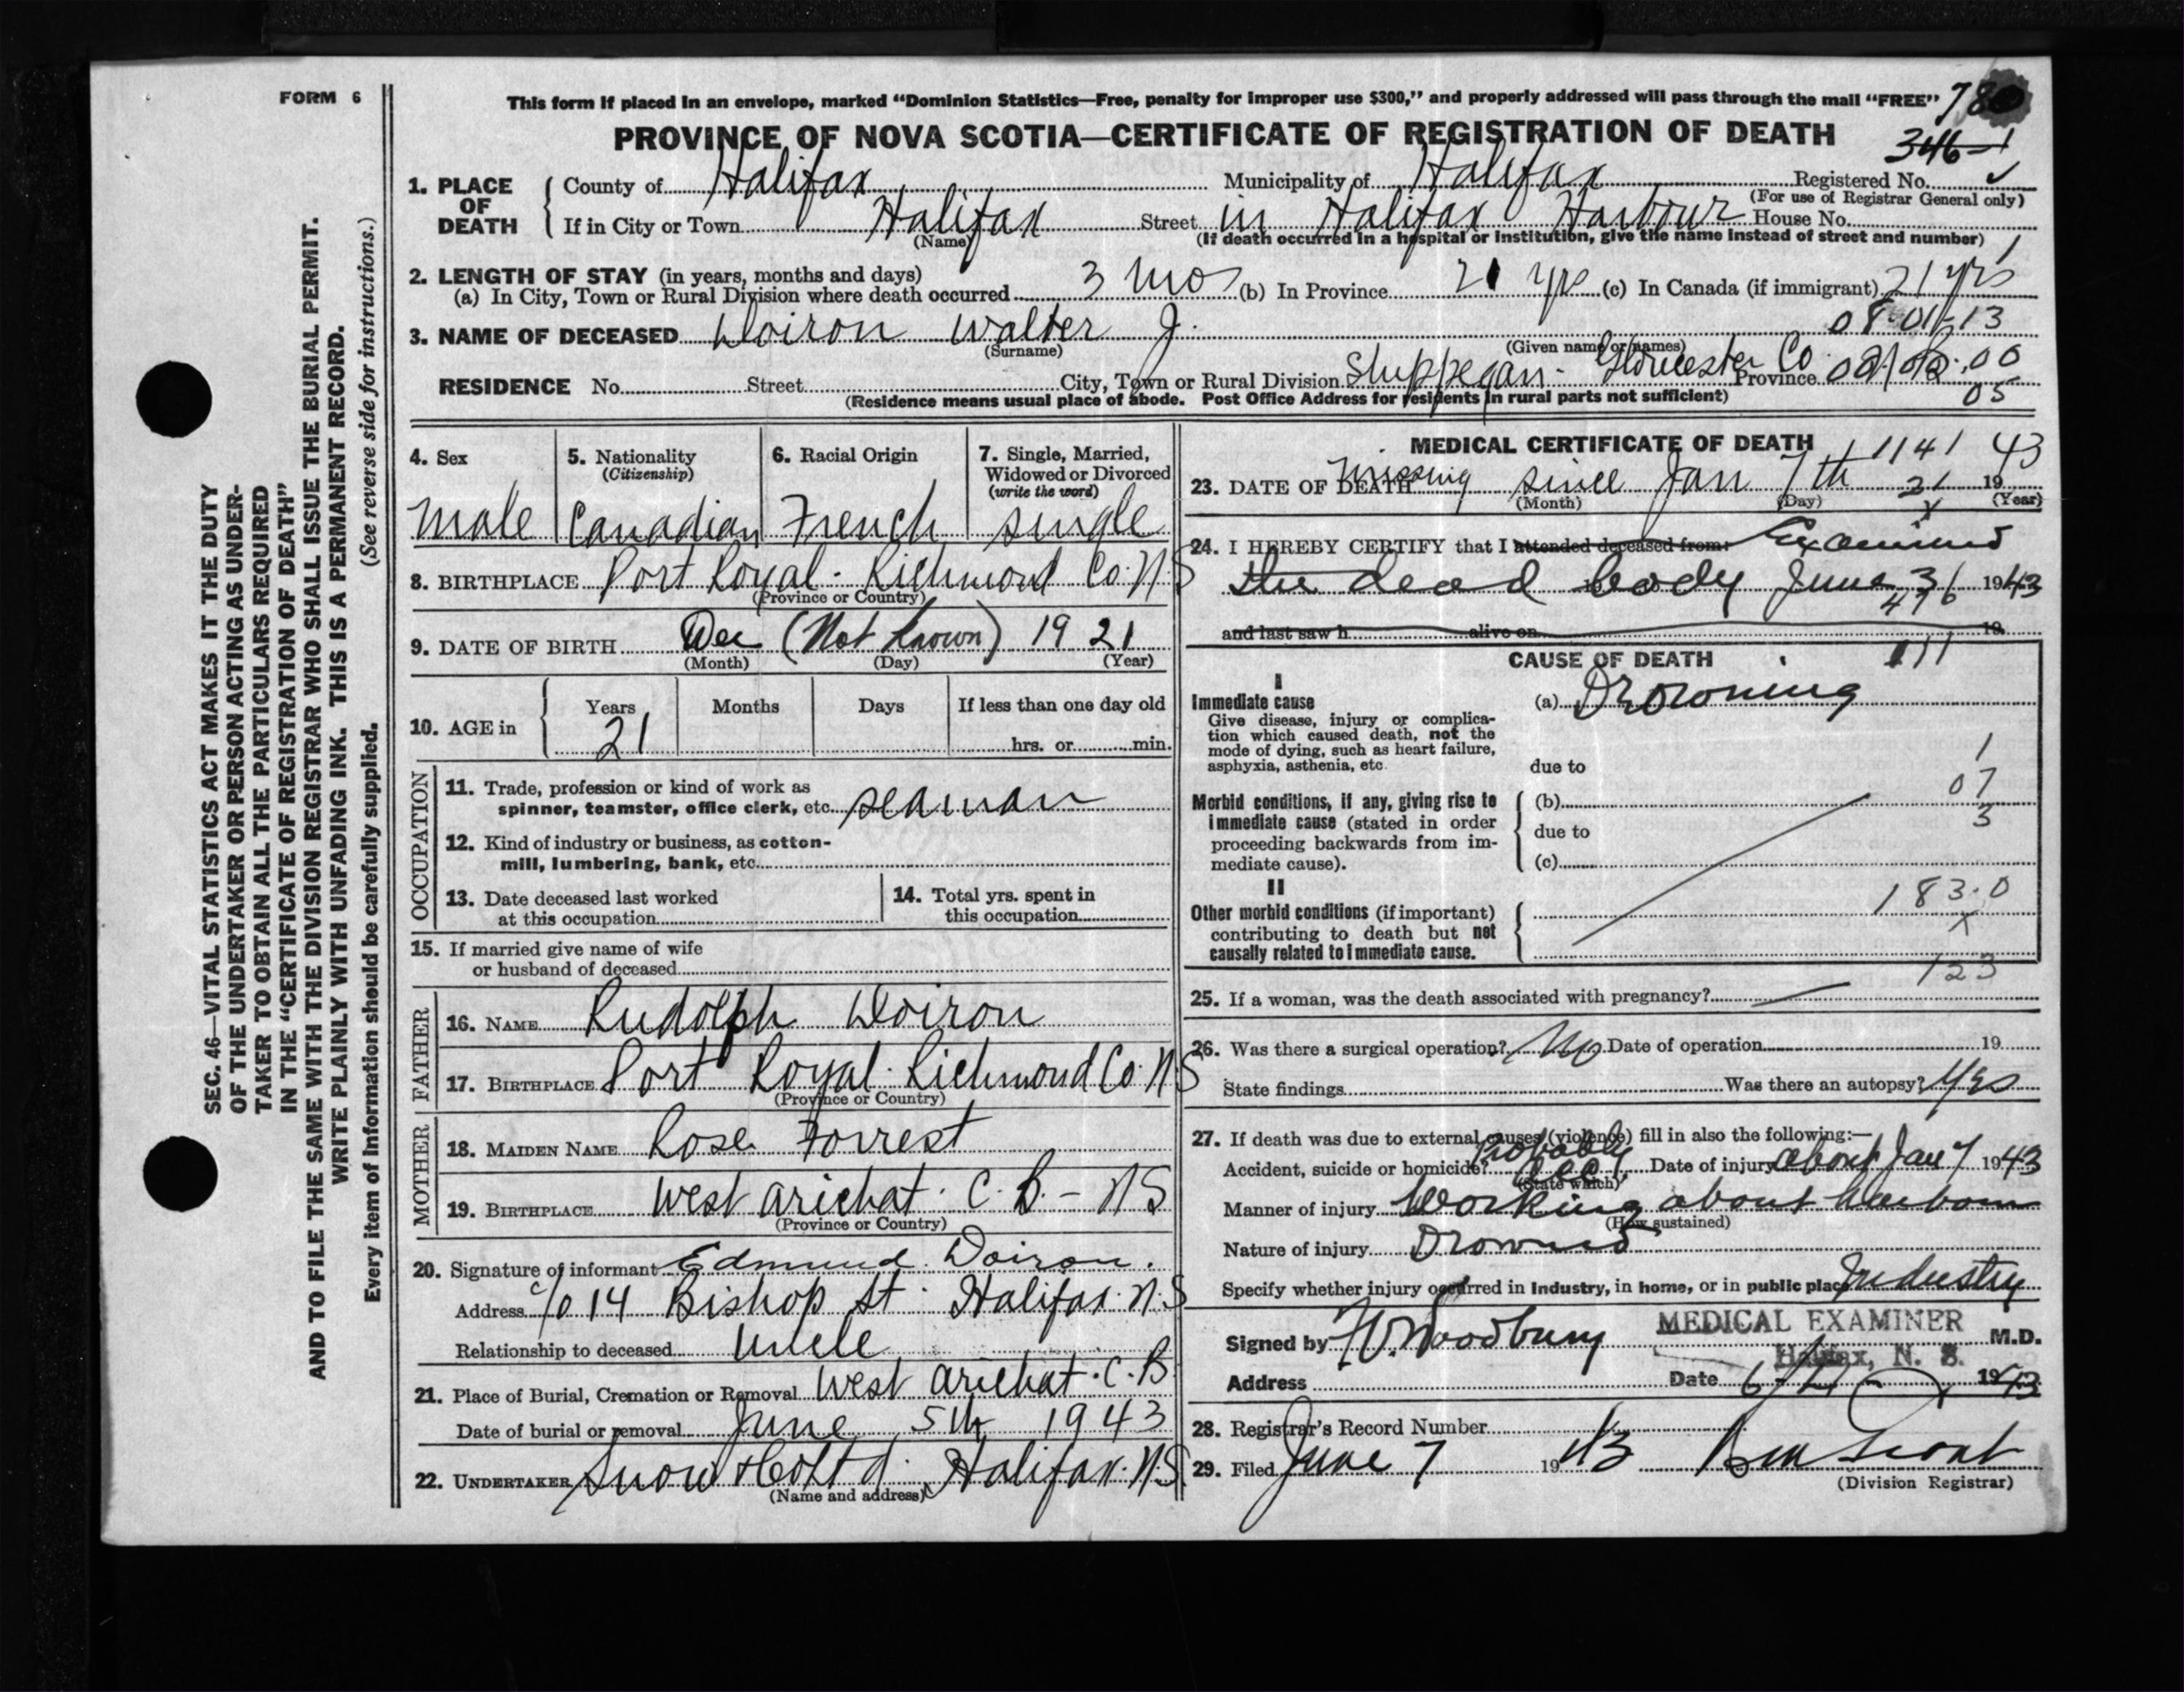 FORM 6
This form if placed in an envelope, marked “Dominion Statistics—Free, penalty for improper use $300,” and properly addressed will pass through the mail “FREE”
PROVINCE OF NOVA SCOTIA—CERTIFICATE OF REGISTRATION OF DEATH
346-1
1. PLACE OF DEATH
County of Halifax Municipality of Halifax Registered No.
(For use of Registrar General only)
If in City or Town Halifax Street in Halifax Harbour House No.
(Name) (If death occurred in a hospital or institution, give the name instead of street and number)
1
2. LENGTH OF STAY (in years, months and days)
(a) In City, Town or Rural Division where death occurred 3 mos (b) In Province 21 yrs (c) In Canada (if immigrant) 21 yrs
3. NAME OF DECEASED Doiron Walter J.
(Surname) (Given name or names)
RESIDENCE No. Street City, Town or Rural Division Shippegan - Gloucester Co. Province
(Residence means usual place of abode. Post Office Address for residents in rural parts not sufficient)
05
4. Sex
male
5. Nationality
(Citizenship)
Canadian
6. Racial Origin
French
7. Single, Married,
Widowed or Divorced
(write the word)
single
8. BIRTHPLACE Port Royal - Richmond Co. N S
(Province or Country)
9. DATE OF BIRTH Dec (Not Known) 1921
(Month) (Day) (Year)
10. AGE in
Years Months Days If less than one day old
21 hrs. or min.
OCCUPATION
11. Trade, profession or kind of work as
spinner, teamster, office clerk, etc. seaman
12. Kind of industry or business, as cotton-
mill, lumbering, bank, etc.
13. Date deceased last worked
at this occupation
14. Total yrs. spent in
this occupation
15. If married give name of wife
or husband of deceased
FATHER
16. NAME Rudolph Doiron
17. BIRTHPLACE Port Royal. Richmond Co. N S
(Province or Country)
MOTHER
18. MAIDEN NAME Rose Forrest
19. BIRTHPLACE West Arichat. C. B. - N S
(Province or Country)
20. Signature of informant Edmund Doiron.
Address c/o 14 Bishop St. Halifax. N.S
Relationship to deceased Uncle
21. Place of Burial, Cremation or Removal West Arichat. C. B.
Date of burial or removal June 5th 1943
22. UNDERTAKER Snow & Co Ltd. Halifax. N.S.
(Name and address)
MEDICAL CERTIFICATE OF DEATH
1141 43
23. DATE OF DEATH Missing since Jan 7th 19
(Month) (Day) (Year)
24. I HEREBY CERTIFY that I attended deceased from: Examined
the dead body June 3 1943
476
and last saw h alive on 19
CAUSE OF DEATH
I
Immediate cause
Give disease, injury or complica-
tion which caused death, not the
mode of dying, such as heart failure,
asphyxia, asthenia, etc.
(a) Drowning
due to
1
07
3
Morbid conditions, if any, giving rise to
immediate cause (stated in order
proceeding backwards from im-
mediate cause).
(b)
due to
(c)
II
Other morbid conditions (if important)
contributing to death but not
causally related to immediate cause.
183.0
X
123
25. If a woman, was the death associated with pregnancy?
26. Was there a surgical operation? No Date of operation 19
State findings Was there an autopsy? Yes
27. If death was due to external causes (violence) fill in also the following:—
Accident, suicide or homicide? Probably acc. Date of injury about Jan 7 1943
(State which)
Manner of injury Working about harbour
(How sustained)
Nature of injury Drowned
Specify whether injury occurred in industry, in home, or in public place Industry
Signed by Woodbury MEDICAL EXAMINER M.D.
Halifax, N. S.
Address Date 1943
28. Registrar’s Record Number
29. Filed June 7 1943
(Division Registrar)
SEC. 46—VITAL STATISTICS ACT MAKES IT THE DUTY
OF THE UNDERTAKER OR PERSON ACTING AS UNDER-
TAKER TO OBTAIN ALL THE PARTICULARS REQUIRED
IN THE “CERTIFICATE OF REGISTRATION OF DEATH”
AND TO FILE THE SAME WITH THE DIVISION REGISTRAR WHO SHALL ISSUE THE BURIAL PERMIT.
WRITE PLAINLY WITH UNFADING INK. THIS IS A PERMANENT RECORD.
(See reverse side for instructions.)
Every item of information should be carefully supplied.